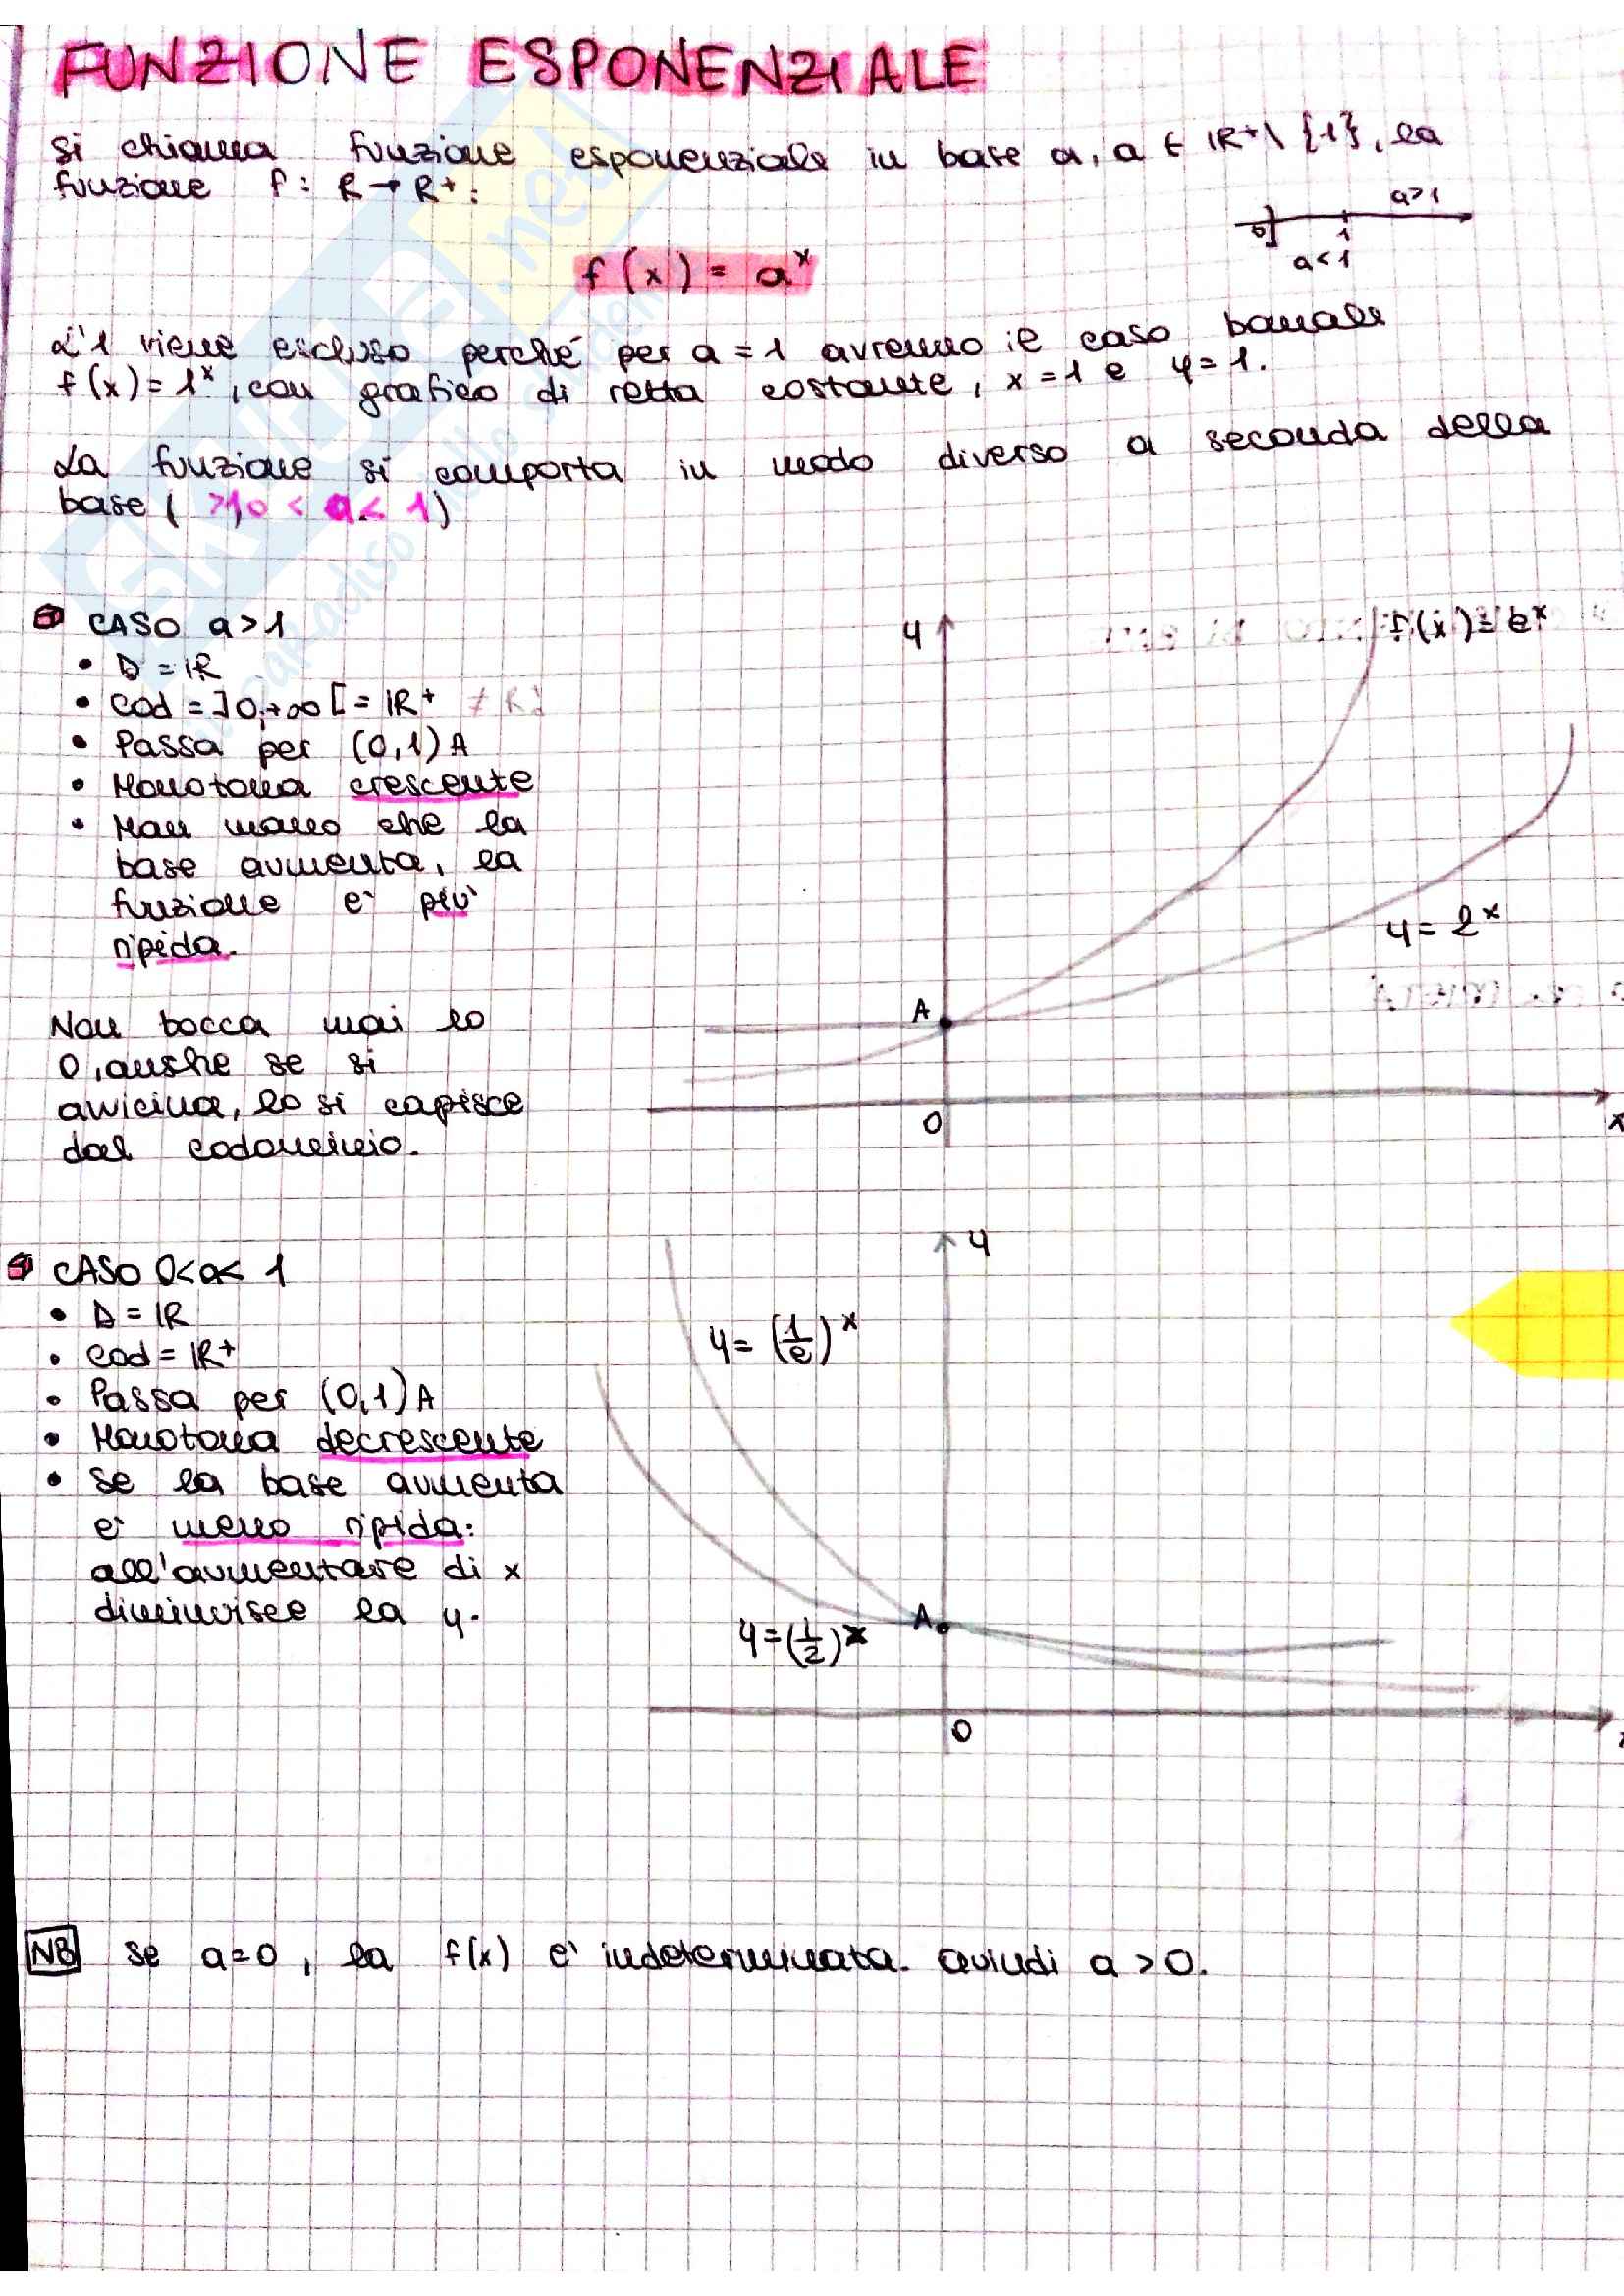 FUNZIONE ESPONENZIALE
Si chiama funzione esponenziale in base a, a ∈ IR⁺\ {1}, la
funzione f: R → R⁺:
a>1
0 1
a<1
f(x) = aˣ
L'1 viene escluso perché per a = 1 avremmo il caso banale
f(x) = 1ˣ, con grafico di retta costante, x = 1 e y = 1.
La funzione si comporta in modo diverso a seconda della
base ( >1, 0 < a < 1)
CASO a>1
• D = IR
• Cod = ]0,+∞[ = IR⁺
• Passa per (0,1) A
• Monotona crescente
• Man mano che la
base aumenta, la
funzione è più
ripida.
Non tocca mai lo
0, anche se si
avvicina, lo si capisce
dal codominio.
y
f(x) = eˣ
y = 2ˣ
A
O
x
CASO 0<a<1
• D = IR
• Cod = IR⁺
• Passa per (0,1) A
• Monotona decrescente
• Se la base aumenta
è meno ripida:
all'aumentare di x
diminuisce la y.
y
y = (1/e)ˣ
y = (1/2)ˣ
A
O
NB se a=0, la f(x) è indeterminata. Quindi a > 0.